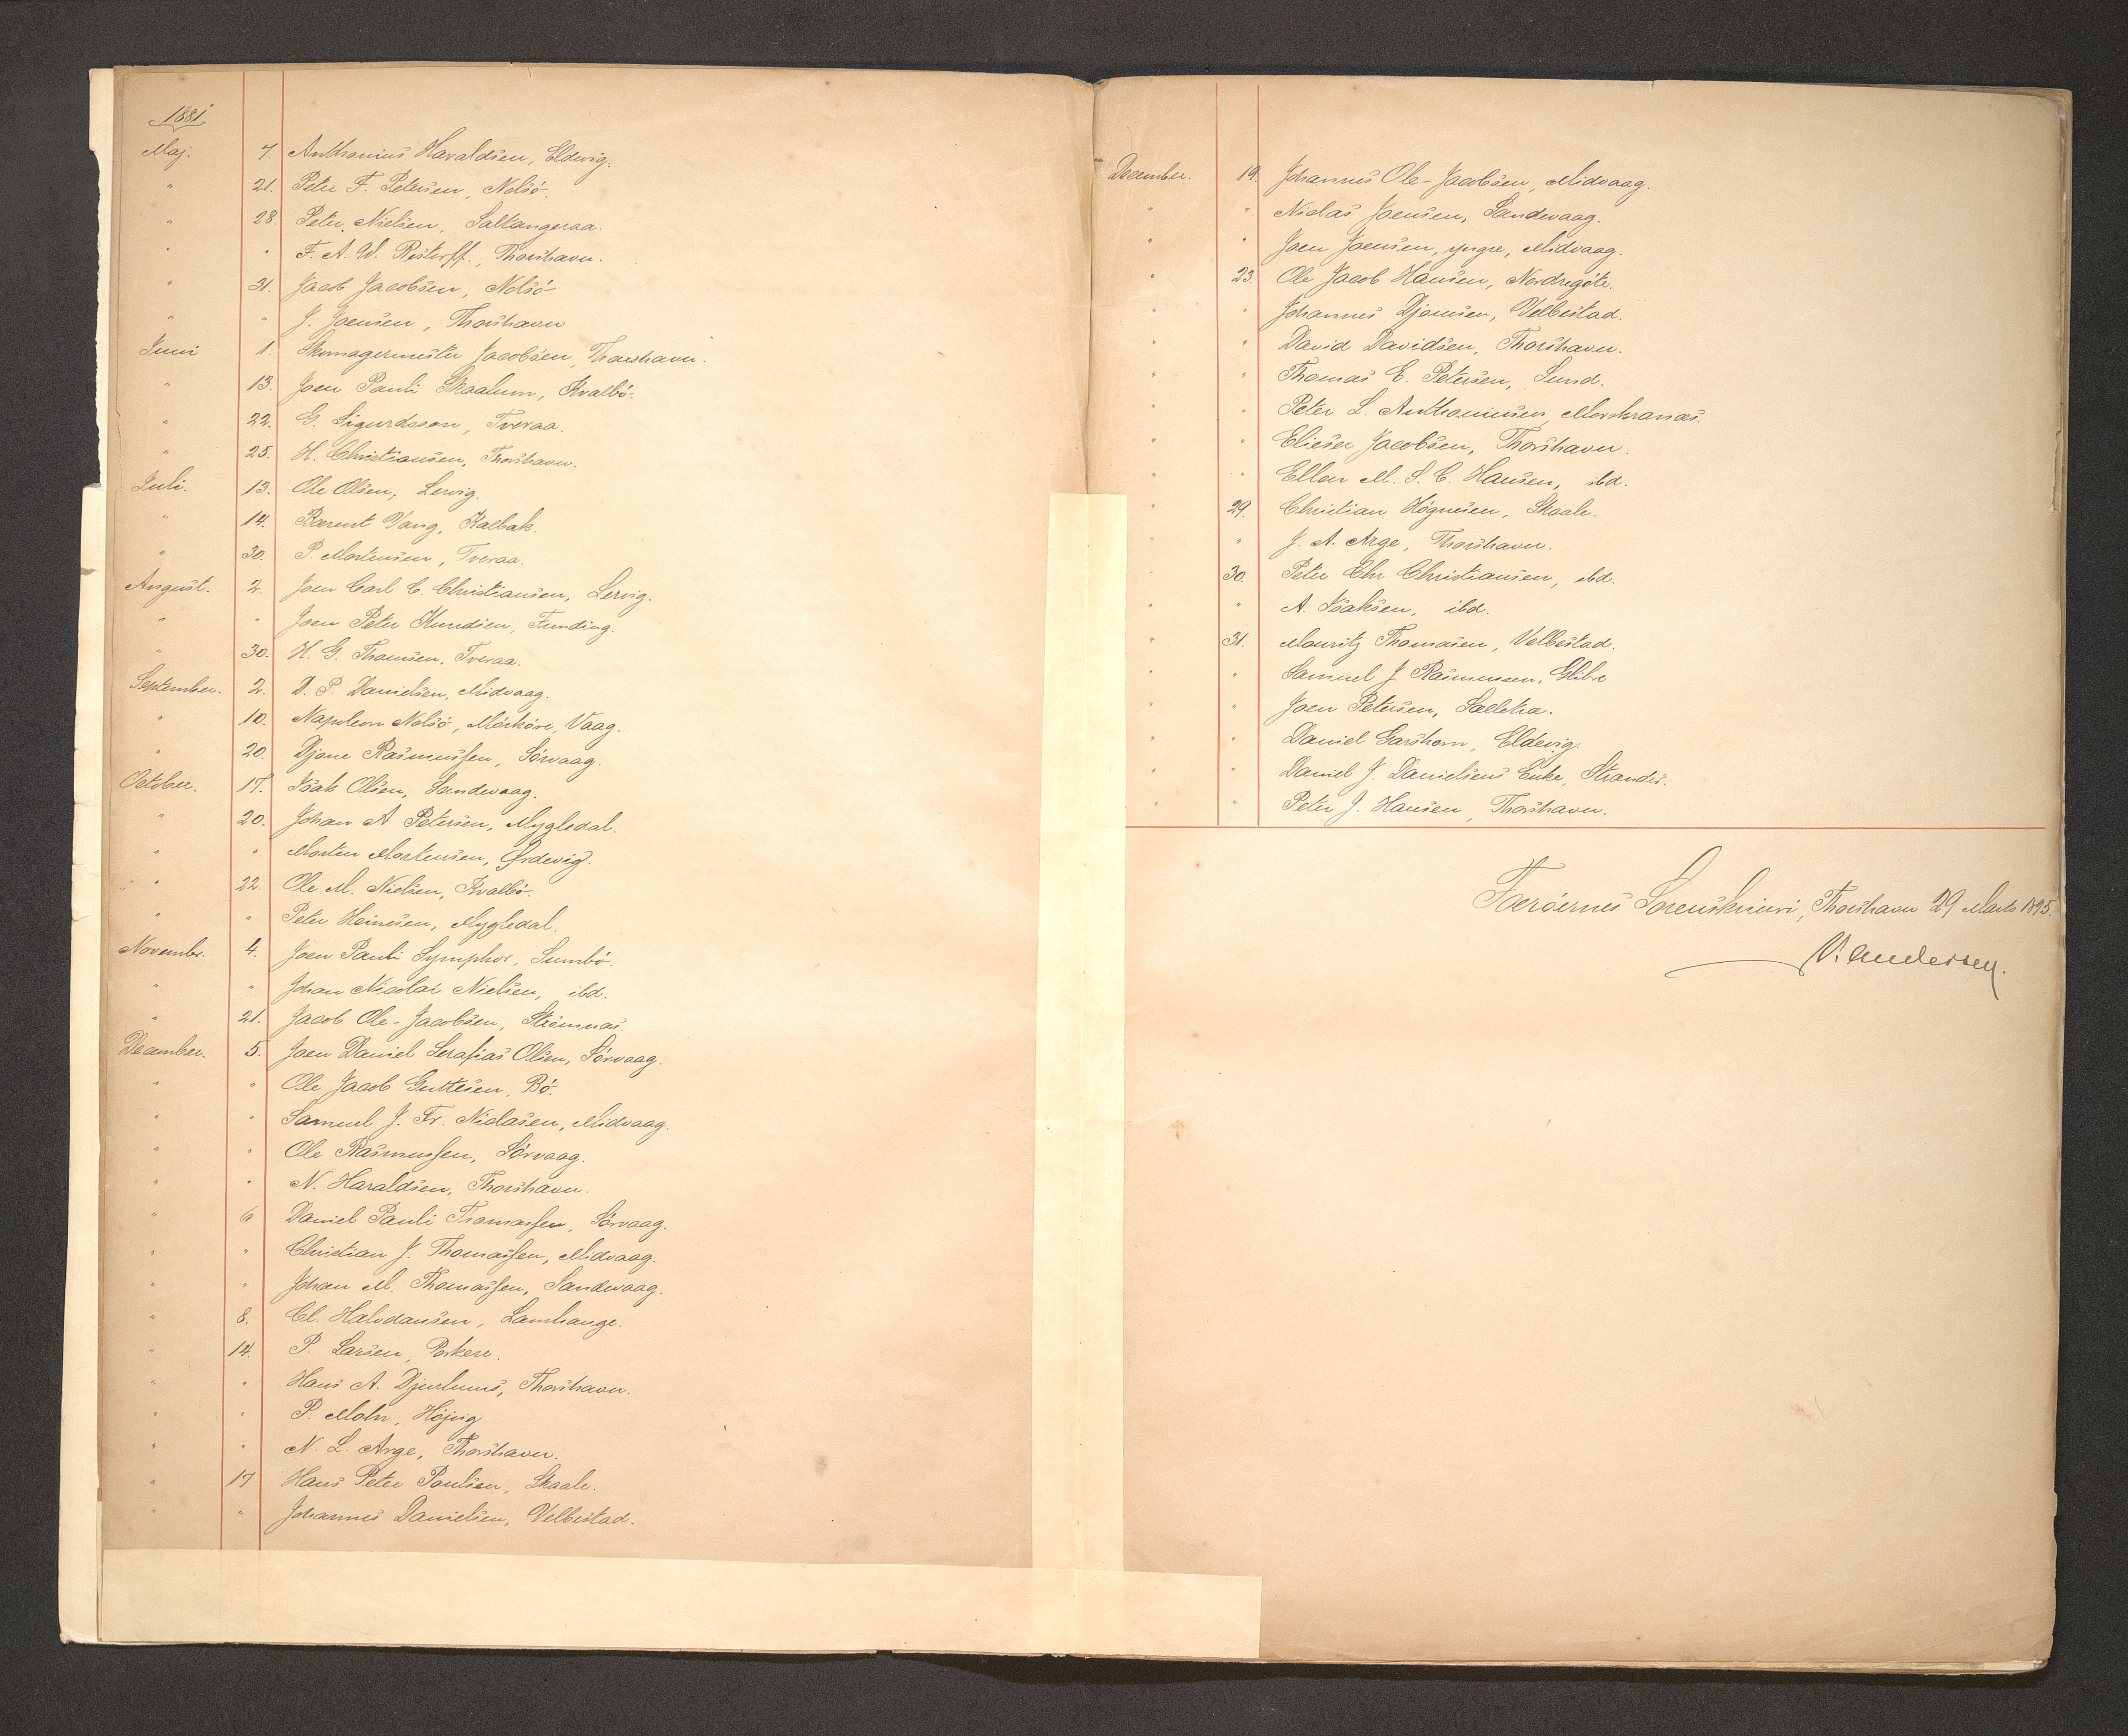 1881.
Maj. 7. Anthonius Haraldsen, Eldevig.
" 21. Peter F. Petersen, Nolsö.
" 28. Peter Nielsen, Saltangeraa.
" " F. A. W. Restorff., Thorshavn.
" 31. Jacob Jacobsen, Nolsö
" " J. Joensen, Thorshavn
Juni 1. Skomagermester Jacobsen, Thorshavn.
" 13. Joen Pauli Skaalum, Kvalbö.
" 22. G. Sigurdsson, Tveraa.
" 25. H. Christiansen, Thorshavn.
Juli. 13. Ole Olsen, Lervig.
" 14. Barent Vang, Kalbak.
" 30. P. Mortensen, Tveraa.
August. 2. Joen Carl C. Christiansen, Lervig.
" " Joen Peter Knudsen, Funding.
" 30. H. G. Thomsen, Tveraa.
September. 2. D. P. Danielsen, Midvaag.
" 10. Napoleon Nolsö, Mörköre, Vaag.
" 20. Djone Rasmussen, Sörvaag.
October. 17. Isak Olsen, Sandevaag.
" 20. Johan A Petersen, Mygledal.
" " Morten Mortensen, Ördevig.
" 22. Ole M. Nielsen, Kvalbö.
" " Peter Heinesen, Mygledal.
Novembr. 4. Joen Pauli Symphor, Sumbö.
" " Johan Nicolai Nielsen, ibd.
" 21. Jacob Ole-Jacobsen, Strömnæs.
December. 5. Joen Daniel Serafias Olsen, Sörvaag.
" " Ole Jacob Guttesen, Bö.
" " Samuel J. Fr. Niclasen, Midvaag.
" " Ole Rasmussen, Sörvaag.
" " N. Haraldsen, Thorshavn.
" 6 Daniel Pauli Thomassen, Sörvaag.
" " Christian J. Thomassen, Midvaag.
" " Johan M. Thomassen, Sandevaag.
" 8. Cl. Halvdansen, Lamhauge.
" 14. P. Larsen, Porkere.
" " Hans A. Djurhuus, Thorshavn.
" " P. Mohr, Höjvig
" " N. L. Arge, Thorshavn.
" 17 Hans Peter Poulsen, Skaale.
" " Johannes Danielsen, Velbestad.
December. 19. Johannes Ole-Jacobsen, Midvaag.
" " Niclas Joensen, Sandevaag.
" " Joen Joensen, yngre, Midvaag.
" 23. Ole Jacob Hansen, Nordregöte.
" " Johannes Djonesen, Velbestad.
" " David Davidsen, Thorshavn.
" " Thomas E. Petersen, Sund.
" " Peter L. Anthoniussen, Morskranæs.
" " Elieser Jacobsen, Thorshavn.
" " Ellen M. S. C. Hansen, ibd.
" 29. Christian Högnesen, Skaale.
" " J. A. Arge, Thorshavn.
" 30. Peter Chr Christiansen, ibd.
" " A. Isaksen, ibd.
" 31. Mouritz Thomasen, Velbestad.
" " Samuel J Rasmussen, Glibre
" " Joen Petersen, Selletra.
" " Daniel Garshorn, Eldevig.
" " Daniel J. Danielsens Enke, Strander.
" " Peter J. Hansen, Thorshavn.
Færöernes Sorenskriveri, Thorshavn 29 Marts 1895.
V. Andersen.